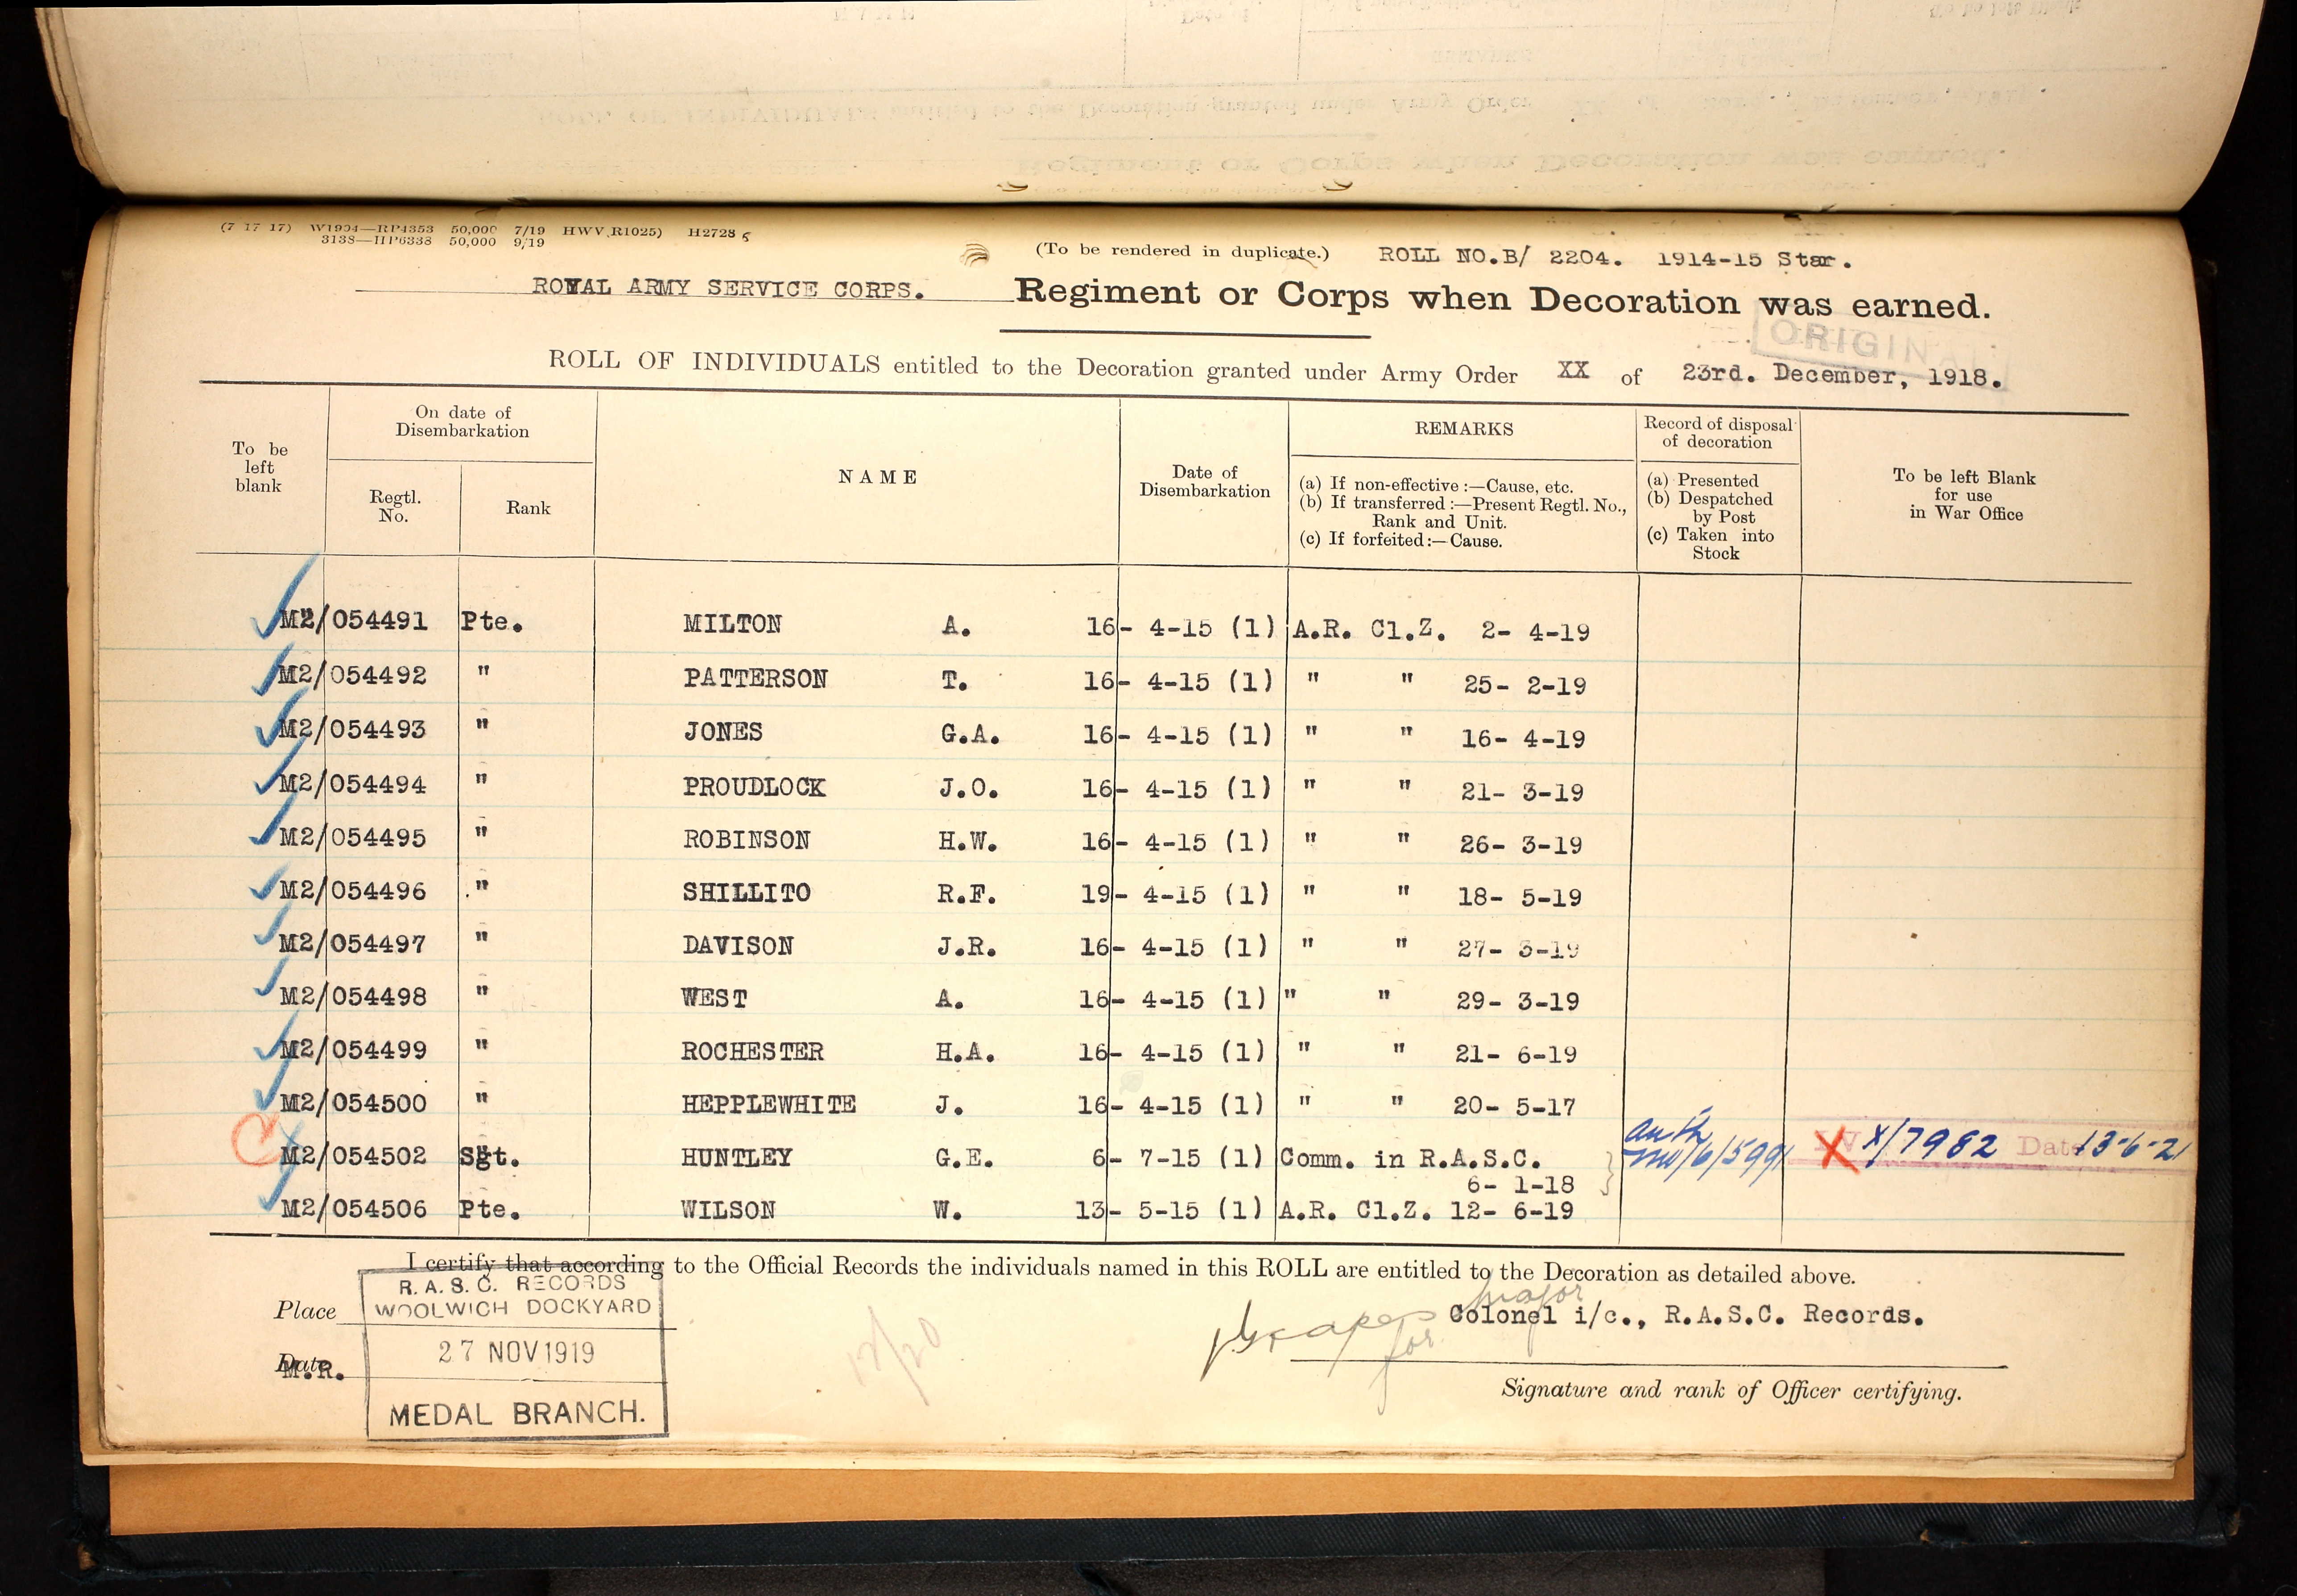 (7 17 17) W1904—RP4353 50,000 7/19 HWV.R1025) H2728
3138—HP6338 50,000 9/19
(To be rendered in duplicate.) ROLL NO.B/ 2204. 1914-15 Star.
ROYAL ARMY SERVICE CORPS. Regiment or Corps when Decoration was earned.
ORIGINAL
ROLL OF INDIVIDUALS entitled to the Decoration granted under Army Order XX of 23rd. December, 1918.
To be left blank
On date of Disembarkation
Regtl. No.
Rank
NAME
Date of Disembarkation
REMARKS
(a) If non-effective :—Cause, etc.
(b) If transferred :—Present Regtl. No., Rank and Unit.
(c) If forfeited :—Cause.
Record of disposal of decoration
(a) Presented
(b) Despatched by Post
(c) Taken into Stock
To be left Blank for use in War Office
M2/054491 Pte. MILTON A. 16- 4-15 (1) A.R. Cl.Z. 2- 4-19
M2/054492 " PATTERSON T. 16- 4-15 (1) " " 25- 2-19
M2/054493 " JONES G.A. 16- 4-15 (1) " " 16- 4-19
M2/054494 " PROUDLOCK J.O. 16- 4-15 (1) " " 21- 3-19
M2/054495 " ROBINSON H.W. 16- 4-15 (1) " " 26- 3-19
M2/054496 " SHILLITO R.F. 19- 4-15 (1) " " 18- 5-19
M2/054497 " DAVISON J.R. 16- 4-15 (1) " " 27- 3-19
M2/054498 " WEST A. 16- 4-15 (1) " " 29- 3-19
M2/054499 " ROCHESTER H.A. 16- 4-15 (1) " " 21- 6-19
M2/054500 " HEPPLEWHITE J. 16- 4-15 (1) " " 20- 5-17
M2/054502 Sgt. HUNTLEY G.E. 6- 7-15 (1) Comm. in R.A.S.C. Auth X/7982 Date 13-6-21
6- 1-18
M2/054506 Pte. WILSON W. 13- 5-15 (1) A.R. Cl.Z. 12- 6-19
I certify that according to the Official Records the individuals named in this ROLL are entitled to the Decoration as detailed above.
Place
R.A.S.C. RECORDS
WOOLWICH DOCKYARD
27 NOV 1919
MEDAL BRANCH.
Date
M.R.
12/20
Major
for
Colonel i/c., R.A.S.C. Records.
Signature and rank of Officer certifying.